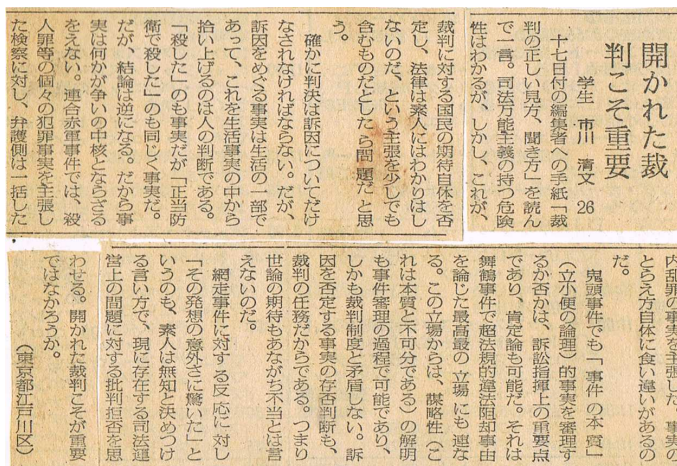 開かれた裁
判こそ重要
学生 市川 清文 26
十七日付の編集者への手紙「裁
判の正しい見方、聞き方」を読ん
で一言。司法万能主義の持つ危険
性はわかるが、しかし、これが、
裁判に対する国民の期待自体を否
定し、法律は素人にはわかりはし
ないのだ、という主張を少しでも
含むものだとしたら問題だと思
う。
確かに判決は訴因についてだけ
なされなければならない。だが、
訴因をめぐる事実は生活の一部で
あって、これを生活事実の中から
拾い上げるのは人の判断である。
「殺した」のも事実だが「正当防
衛で殺した」のも同じく事実だ。
だが、結論は逆になる。だから事
実は何かが争いの中核とならざる
をえない。連合赤軍事件では、殺
人罪等の個々の犯罪事実を主張し
た検察に対し、弁護側は一括した
内乱罪の事実を主張した。事実の
とらえ方自体に食い違いがあるの
だ。
鬼頭事件でも「事件の本質」
（立小便の論理）的事実を審理す
るか否かは、訴訟指揮上の重要点
であり、肯定論も可能だ。それは
舞鶴事件で超法規的違法阻却事由
を論じた最高裁の立場にも連な
る。この立場からは、謀略性（こ
れは本質と不可分である）の解明
も事件審理の過程で可能であり、
しかも裁判制度と矛盾しない。訴
因を否定する事実の存否判断も、
裁判の任務だからである。つまり
世論の期待もあながち不当とは言
えないのだ。
網走事件に対する反応に対し
「その発想の意外さに驚いた」と
いうのも、素人は無知と決めつけ
る言い方で、現に存在する司法運
営上の問題に対する批判拒否を思
わせる。開かれた裁判こそが重要
ではなかろうか。
（東京都江戸川区）